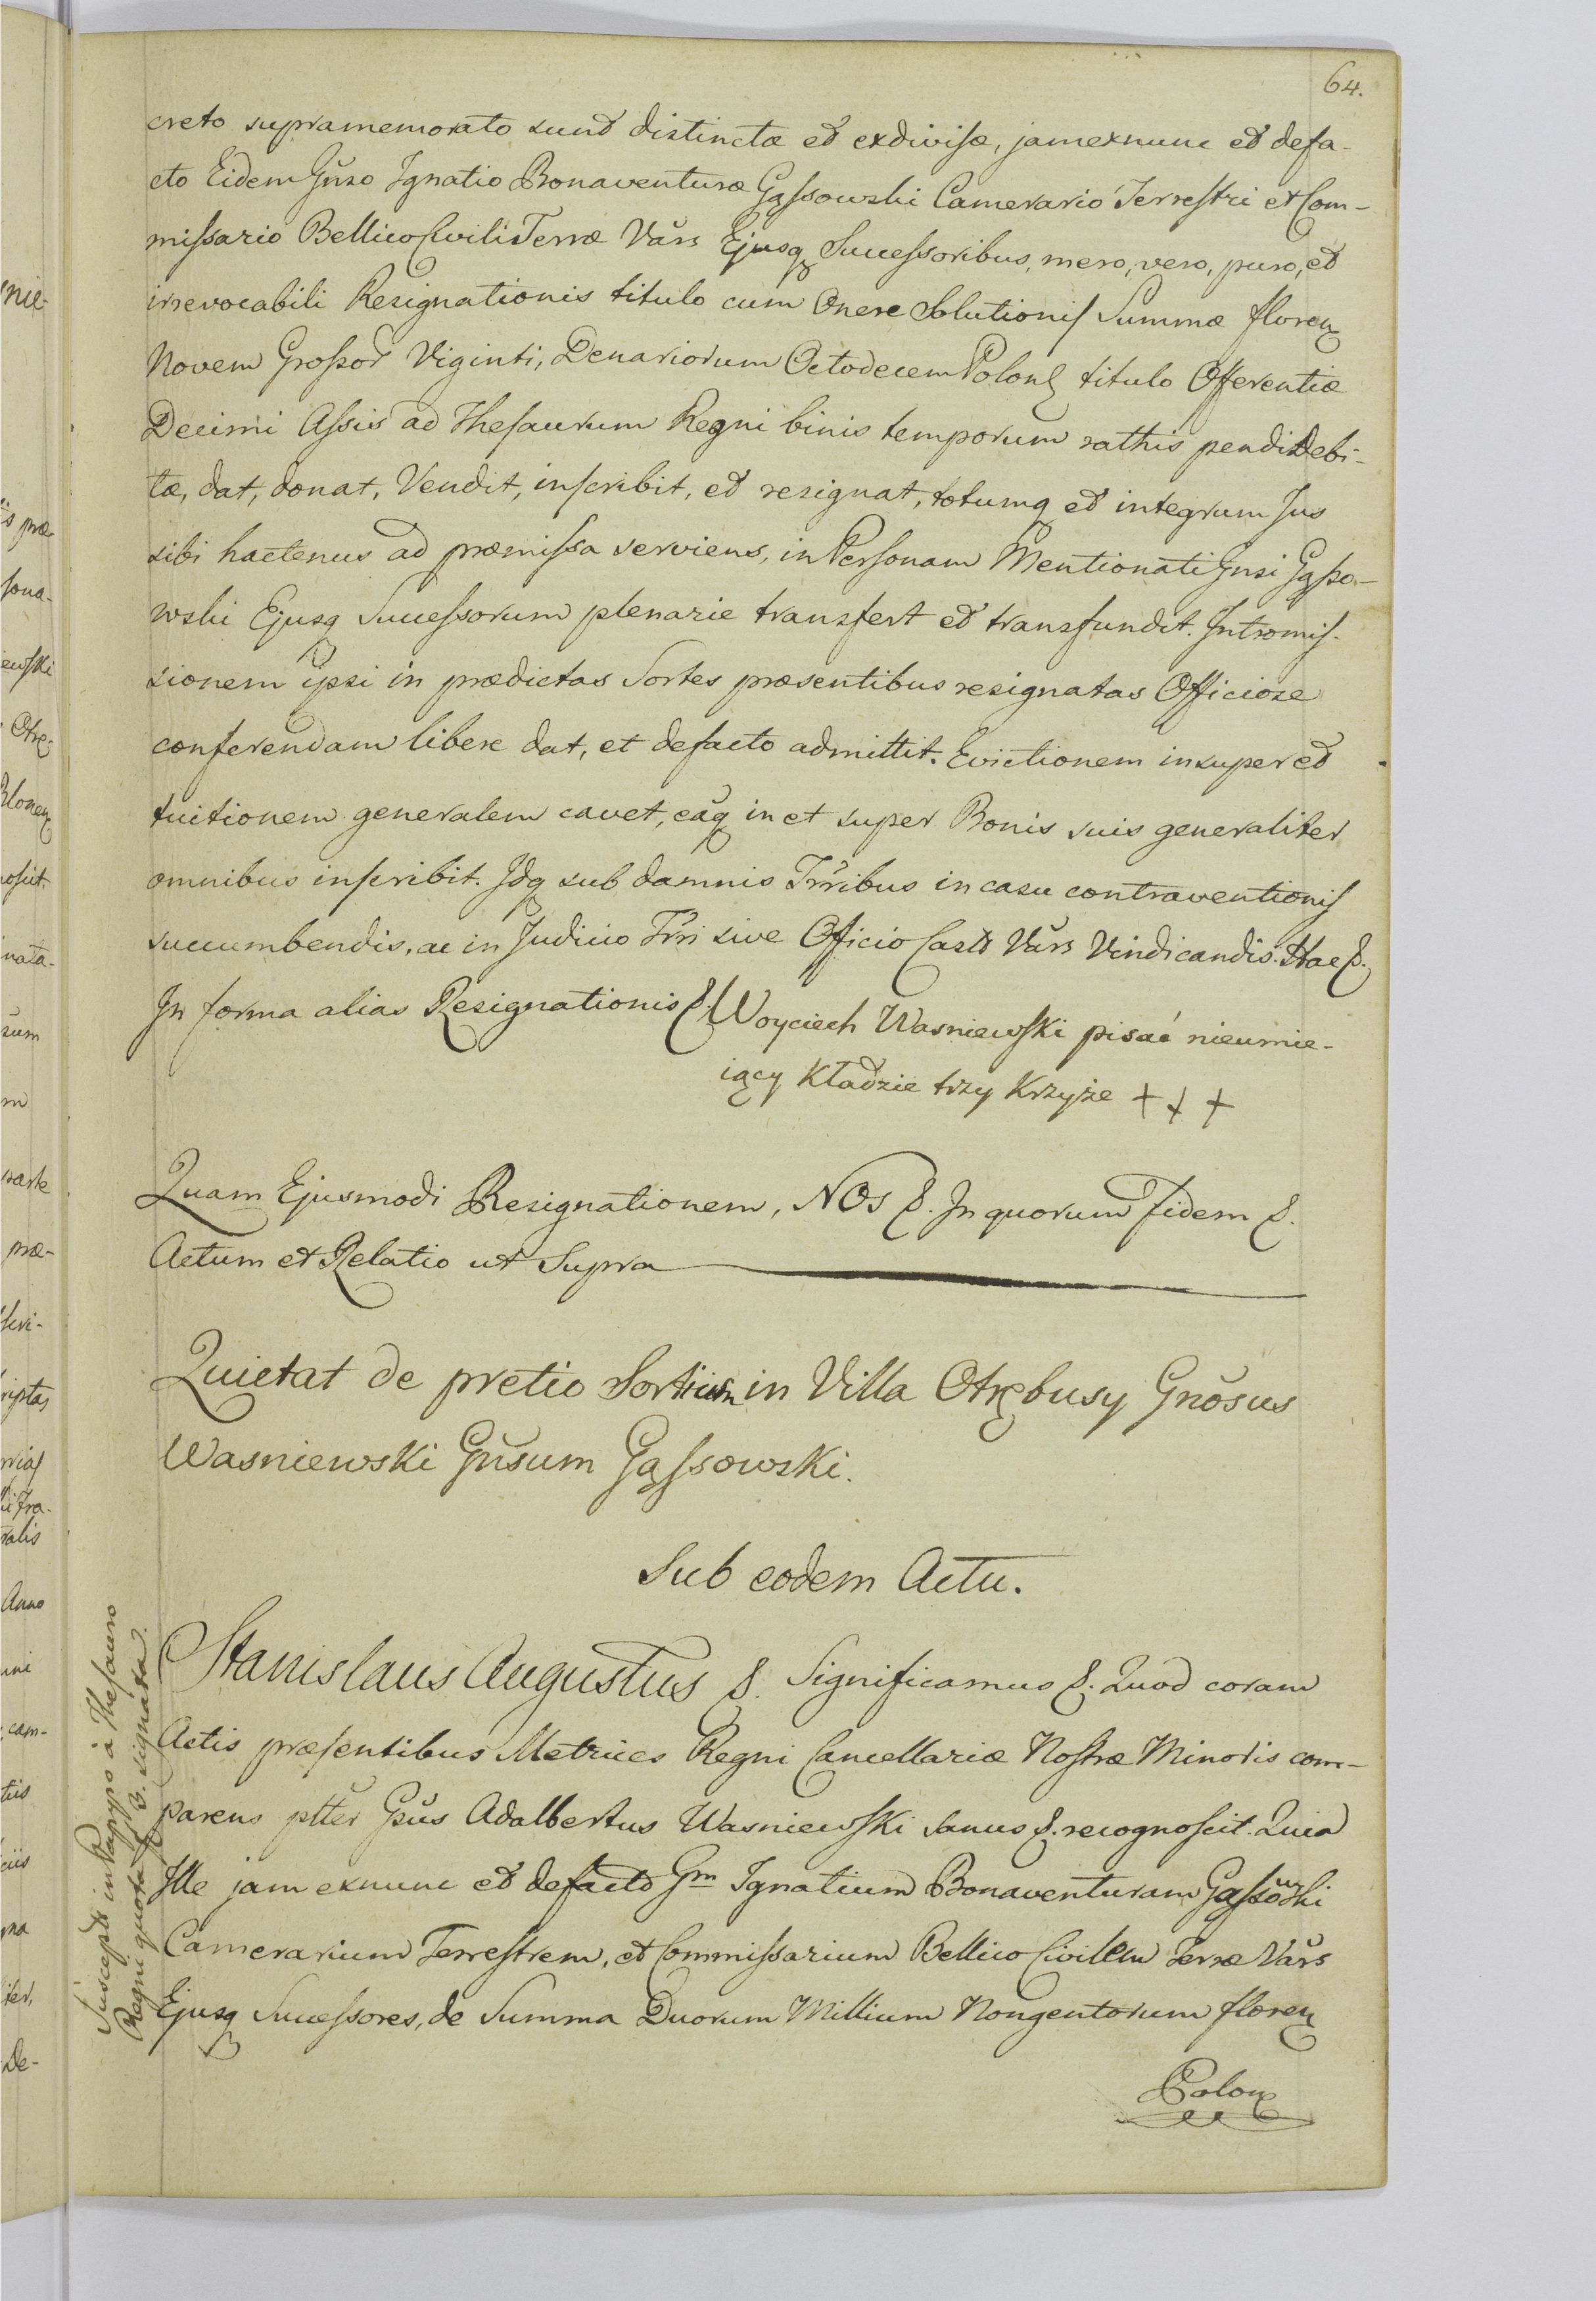 64.
creto supramemorato sunt distinctæ et exdivisæ, jamexnunc et defa-
cto Eidem Gnso Ignatio Bonaventuræ Gąssowski Camerario Terrestri et Com-
missario Bellico Civili Terræ Vars Ejusq Successoribus, mero, vero, puro, et
irrevocabili Resignationis titulo cum Onere Solutionis Summæ floren
Novem Grossor Viginti, Denariorum Octodecem Polon titulo Offerentiæ
Decimi Assis ad Thesaurum Regni binis temporum rathis pendi Debi-
tæ, dat, donat, Vendit, inscribit, et resignat, totumq et integrum Jus
sibi hactenus ad præmissa serviens, in Personam Mentionati Gnsi Gąsso-
wski Ejusq Successorum plenarie transfert et transfundit. Intromis-
sionem ipsi in prædictas Sortes præsentibus resignatas Officiose
conferendam libere dat, et defacto admittit. Evictionem insuper et
tuitionem generalem cavet, eāq in et super Bonis suis generaliter
omnibus inscribit. Idq sub damnis Trribus in casu contraventionis
succumbendis, ac in Judicio Trri sive Officio Castr Vars Vindicandis. Hac &.
In forma alias Resignationis &. Woyciech Wasniewski pisać nieumie-
iący Kładzie trzy Krzyże + + +
Quam Ejusmodi Resignationem, NOs &. In quorum Fidem &.
Actum et Relatio ut Supra
Quietat de pretio Sortium in Villa Otrębusy Gnosus
Wasniewski Gnsum Gąssowski.
Sub eodem Actu.
Stanislaus Augustus &. Significamus &. Quod coram
Actis præsentibus Metrices Regni Cancellariæ Nostræ Minoris com-
parens ptter Gsus Adalbertus Wasniewski sanus &. recognoscit. Quia
Ille jam exnunc et defacto Gm Ignatium Bonaventuram Gąssowski
Camerarium Terrestrem, et Commissarium Bellico Civilem Terræ Vars
Ejusq Successores, de Summa Duorum Millium Nongentorum floren
Polon
Suscepti in Papyro à Thesauro
Regni quota f 3. signata.